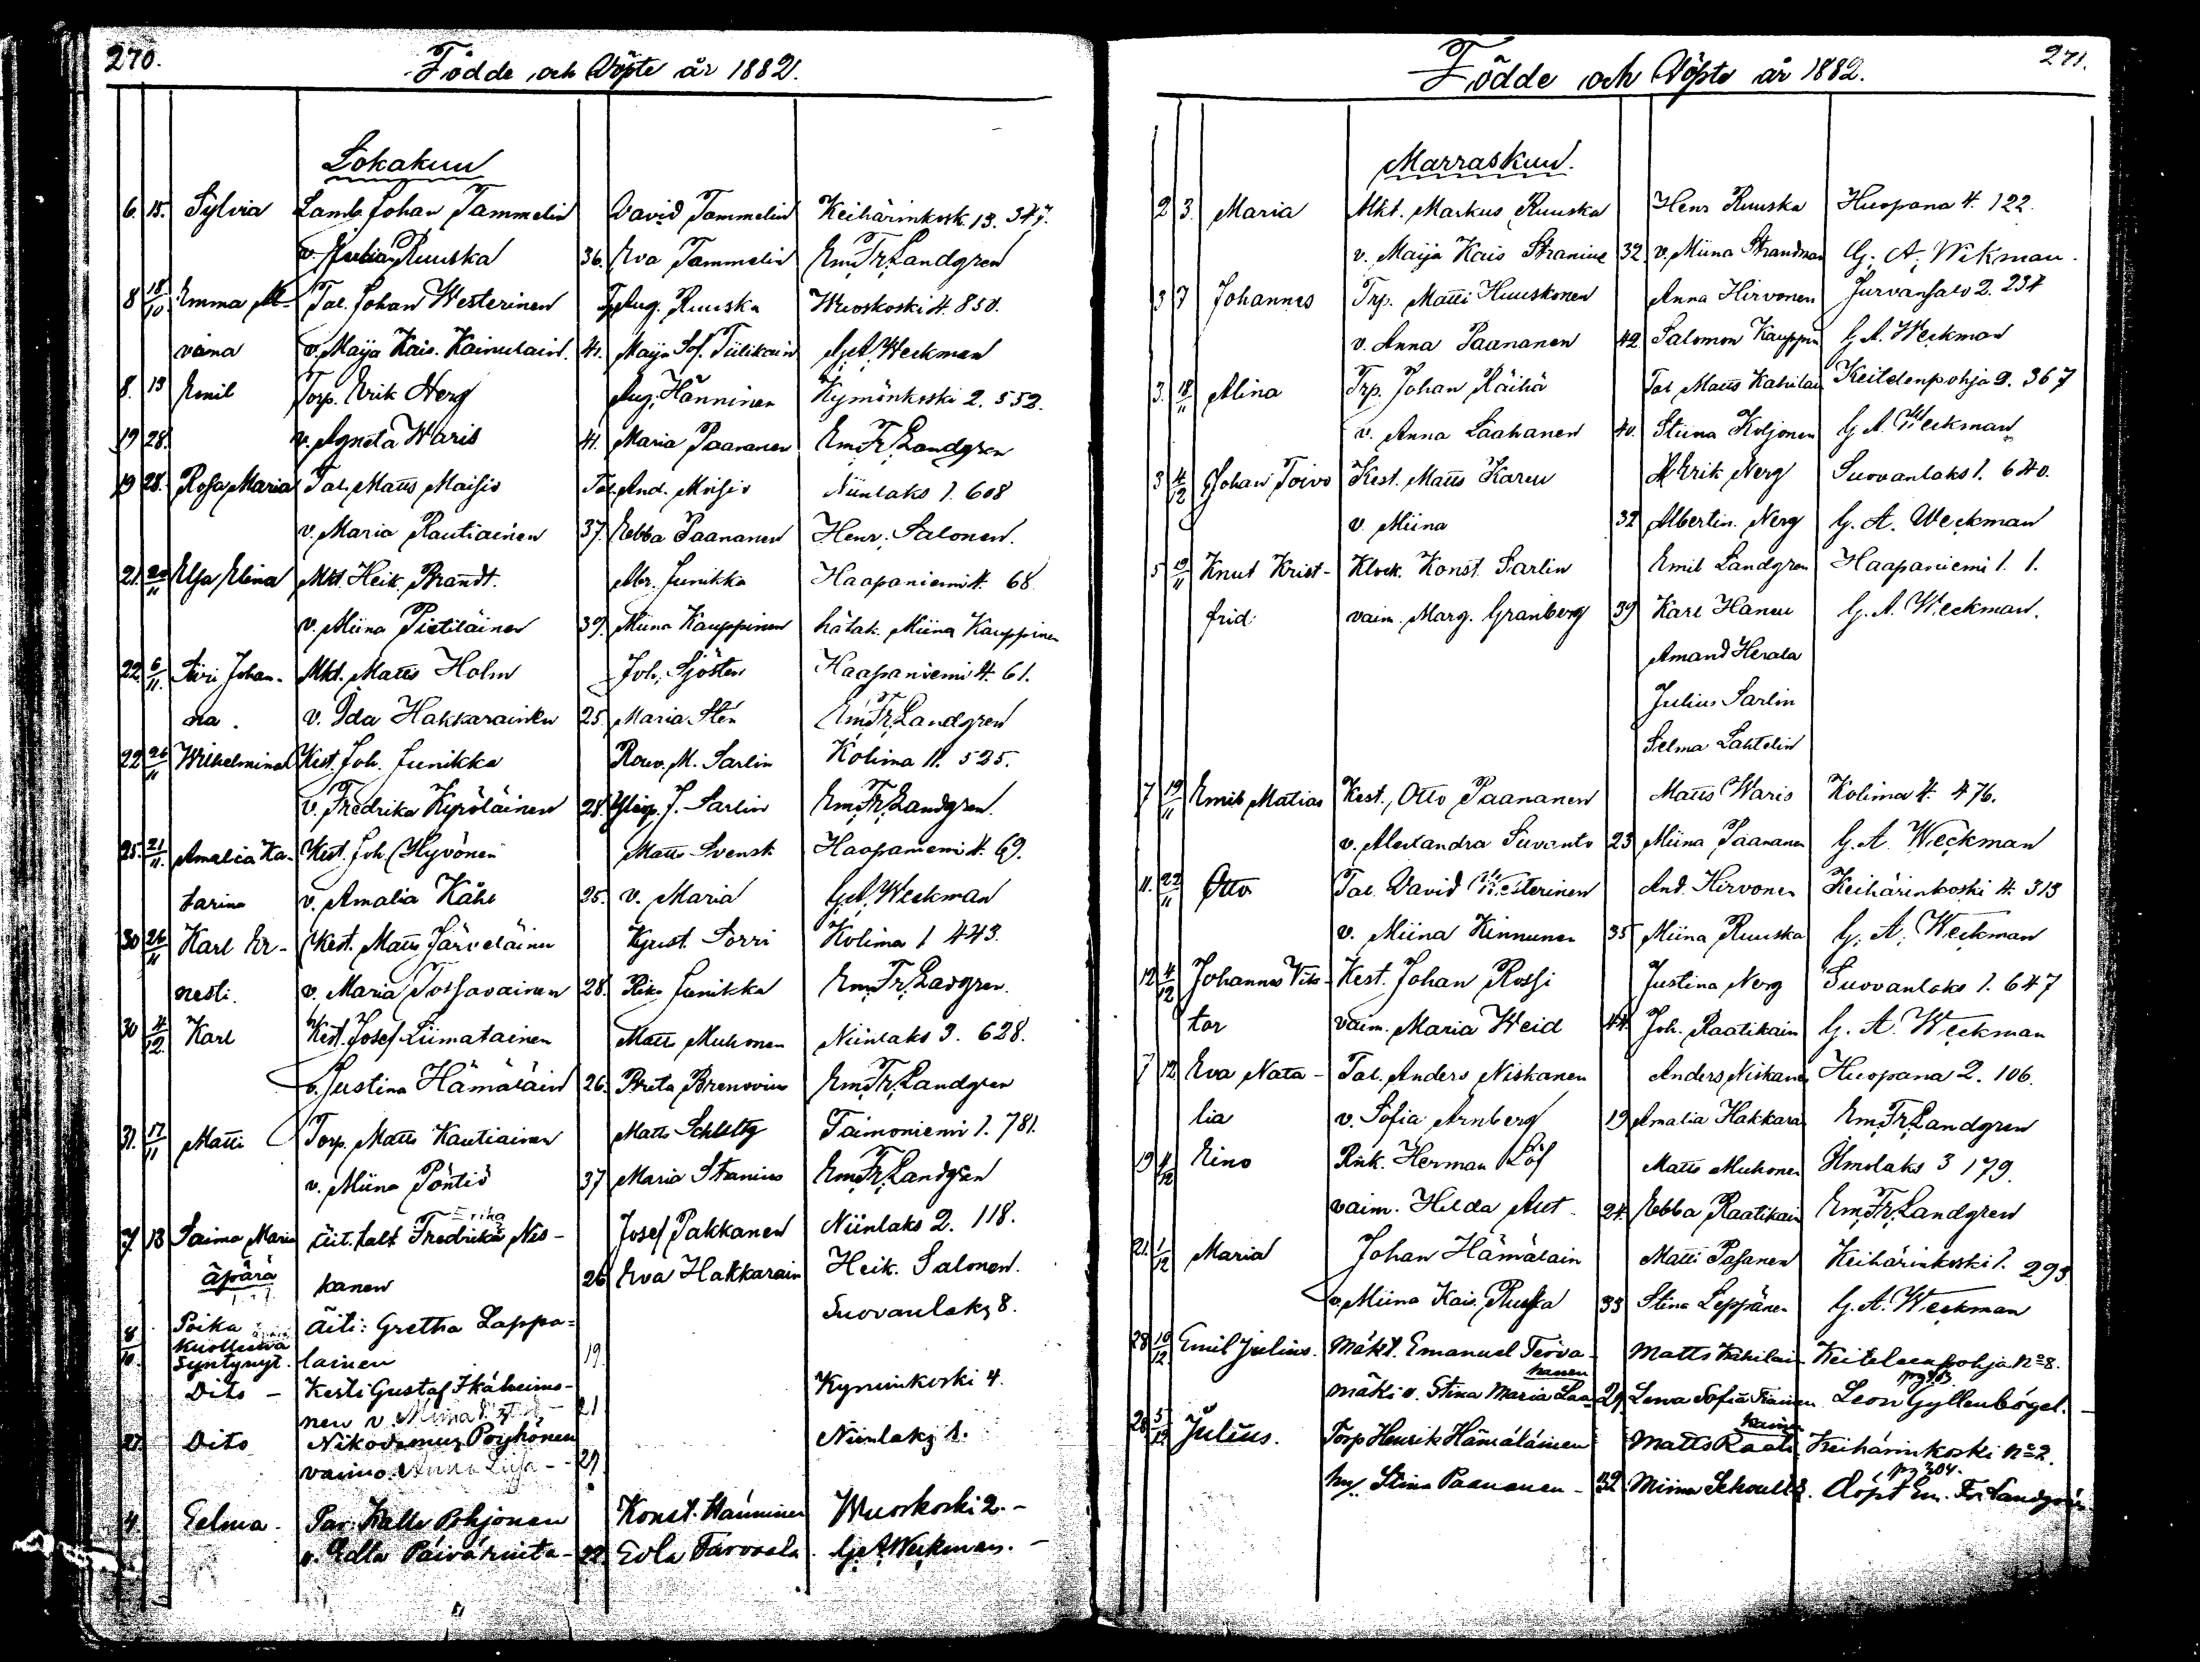 270.
Födde och Döpte år 1882.
Lokakuu
6. 15. Sylvia Lamb. Johan Tammelin David Tammelin Keihärinkosk. 13. 347.
v. Ruuska 36. Eva Tammelin Em. Fr. Landgren
8 18/10. Emma Al- Tal. Johan Westerinen Aug. Ruuska Wuoskoski 4. 850.
viina v. Maija Kais. Kainulain. 41. Maija Sof. Tiilikain G. A. Weckman
8. 13 Emil Torp. Erik Nerg Aug. Hänninen Kymönkoski 2. 552.
19 28. v. Agneta Waris 41. Maria Paananen Em. Fr. Landgren
19 28. Rosa Maria Tal. Matts Maisio Tal. And. Maisio Niinlaks 1. 608
v. Maria Rautiainen 37. Ebba Paananen Henr. Salonen.
21. 20/11 Elsa Elina Mkt. Heik. Brandt. Abr. Junikka Haapaniemi 4. 68
v. Miina Pietiläinen 39. Miina Kauppinen hätäk. Miina Kauppinen
22. 6/11. Siiri Johan- Mkt. Matts Holm Joh. Sjösten Haapaniemi 4. 61.
na. v. Ida Hakkarainen 25. Maria Sten Em. Fr. Landgren
22 26/11 Wilhelmina Kest. Joh. Junikka Rouv. M. Sarlin Kolima 11. 525.
v. Fredrika Kyröläinen 28. J. Sarlin Em. Fr. Landgren.
25. 21/11. Amalia Ka- Kest. Joh. Hyvönen Matts Svensk Haapaniemi 4. 69.
tarina v. Amalia Kåhl 25. v. Maria G. A. Weckman
30 26/11 Karl Er- Kest. Matts Järveläinen Krist. Sorri Kolima 1 443.
nesti. v. Maria Tossavainen 28. Rika Junikka Em. Fr. Landgren.
30 4/12. Karl Kest. Josef Liimatainen Matts Muhonen Niinlaks 3. 628.
v. Justina Hämäläin 26. Brita Brenovius Em. Fr. Landgren
31. 17/11 Matti Torp. Matts Rautiainen Matts Taimoniemi 1. 781.
v. Miina Pöntiö 37 Maria Stranius Em. Fr. Landgren
7 13 Saima Maria äit. talt Fredrika Erika Nis- Josef Pakkanen Niinlaks 2. 118.
äpärä kanen 26 Eva Hakkarain Heik. Salonen.
8/10. Poika äiti: Gretha Lappa- Suovanlaks 8.
kuolleena syntynyt. lainen 19.
Dito - Kesti Gustaf Kymönkoski 4.
nen v. Miina 21
27. Dito Nikodemus Poyhönen Niinlaks 1.
vaimo Anna Liisa - - 29.
4 Selma. Kalle Pohjonen Konst. Hänninen Wuoskoski 2. -
v. Edla Päivärinta - 22. Edla Tarvoala. G. A. Weckman. -
271.
Födde och Döpte år 1882.
Marraskuu.
2 3. Maria Mkt. Markus Ruuska Henr Ruuska Huopana 4. 122.
v. Maija Kais Stranius 32. v. Miina Strandman G. A. Wekman.
3 7 Johannes Trp. Matti Huuskonen Anna Hirvonen Jurvansalo 2. 234
v. Anna Paananen 42. Salomon Kauppin G. A. Weckman
3. 18/11 Alina Trp. Johan Räihä Tal Matts Kahilai Keitelenpohja 9. 367
v. Anna Laahanen 40. Stiina Koljonen G. A. Weckman
3 4/12 Johan Toivo Kest. Matts Kareu A Erik Nerg Suovanlaks 1. 640.
v. Miina 32 Albertin. Nerg G. A. Weckman
5 19/11 Knut Krist- Klock. Konst. Sarlin Emil Landgren Haapaniemi 1. 1.
frid. vaim. Marg. Granberg 39 Karl Haneu G. A. Weckman.
Amand Herala
Julius Sarlin
Selma Lahtelin
7 19/11 Emil Matias Kest. Otto Paananen Matts Waris Kolima 4. 476.
v. Alexandra Suvanto 23 Miina Paananen G. A. Weckman
11. 22/11 Otto Tal. David Westerinen And. Hirvonen Keihärinkoski 4. 313
v. Miina Kinnunen 35 Miina Ruuska G. A. Weckman
12 4/12 Johannes Vik- Kest. Johan Rossi Justina Nerg Suovanlaks 1. 647
tor vaim. Maria Weid 44. Joh. Raatikain G. A. Weckman
7 12 Eva Nata- Tal. Anders Niskanen Anders Niskanen Huopana 2. 106.
lia v. Sofia Arnberg 19 Amalia Hakkara Em. Fr. Landgren
19 4/12 Eino Herman Löf Matts Muhonen Ilmolaks 3 179.
vaim. Hilda 24. Ebba Raatikain Em. Fr. Landgren
21. 1/12 Maria Johan Hämälain Matti Pasanen Keihärinkoski 1. 293
v. Miina Kais. Ruska 33 Stina Leppänen G. A. Weckman
28 10/12 Emil Julius. Mäkt. Emanuel Terva- Matts Kahilai- Keiteleenpohja No 8.
hanen
mäki v. Stina Maria Laa- 29. Lena Sofia Leon Gyllenbögel.
28 5/12 Julius. Torp Henrik Hämäläinen Matts Raati- kainen Keihärinkoski No 2. pg 304.
hu Stina Paananen - 32. Miina Schoultz. Döpt Em. Fr. Landgren